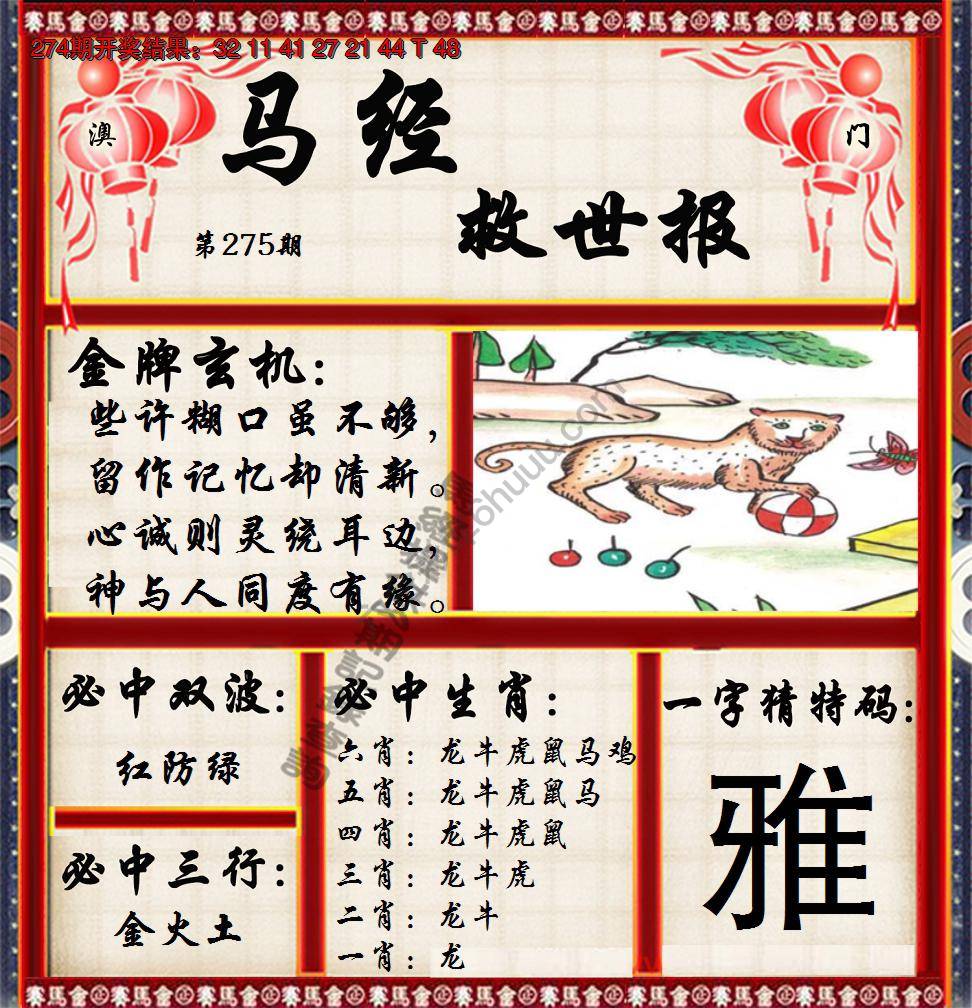 赛馬會
274期开奖结果：32 11 41 27 21 44 T 48
澳
门
马经
救世报
第275期
金牌玄机：
些许糊口虽不够，
留作记忆却清新。
心诚则灵绕耳边，
神与人同度有缘。
必中双波：
红防绿
必中三行：
金火土
必中生肖：
六肖：龙牛虎鼠马鸡
五肖：龙牛虎鼠马
四肖：龙牛虎鼠
三肖：龙牛虎
二肖：龙牛
一肖：龙
一字猜特码：
雅